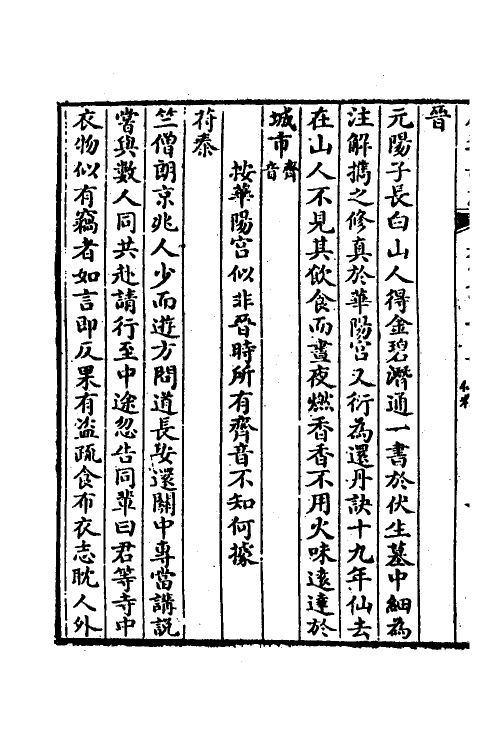 晉
元陽子長白山人得金碧潛通一書於伏生墓中細為
注解擕之修真於華陽宮又衍為還丹訣十九年仙去
在山人不見其飲食而晝夜燃香香不用火味遠達於
城市齊音
按華陽宮似非晉時所有齊音不知何據
符秦
竺僧朗京兆人少而遊方問道長安還關中專當講説
嘗與數人同共赴請行至中途忽告同輩曰君等寺中
衣物似有竊者如言即反果有盜疏食布衣志耽人外